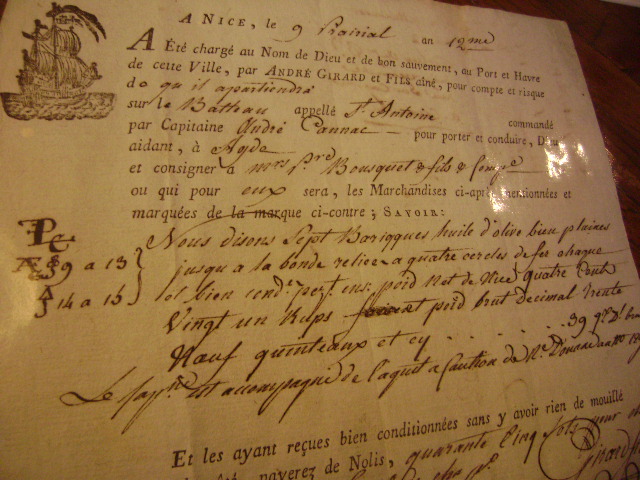 A NICE, le 9 Prairial an 12me
A Été chargé au Nom de Dieu et de bon sauvement, au Port et Havre
de cette Ville, par ANDRÉ GIRARD et FILS aîné, pour compte et risque
de qu'il apartiendra
sur le Batteau appellé St. Antoine commandé
par Capitaine André Cannac pour porter et conduire, Dieu
aidant, à Agde
et consigner à Mrs. Prd. Bousquet & fils & Compe
ou qui pour eux sera, les Marchandises ci-après mentionnées et
marquées de la marque ci-contre ; SAVOIR:
Nous disons Sept Bariques huile d'olive bien plaines
9 a 13 jusqu'a la bonde reliée a quatre cercles de fer chaque
14 a 15 et bien cond. pest. ens. poid Net de Nice quatre Cent
Vingt un Rups poid brut decimal trente
Neuf quinteaux et cy 39 brut
Le est accompagné de l'aquit a Caution de Douane
Et les ayant reçues bien conditionnées sans y avoir rien de mouillé
payerez de Nolis, quarante Cinq sols pour
Girard